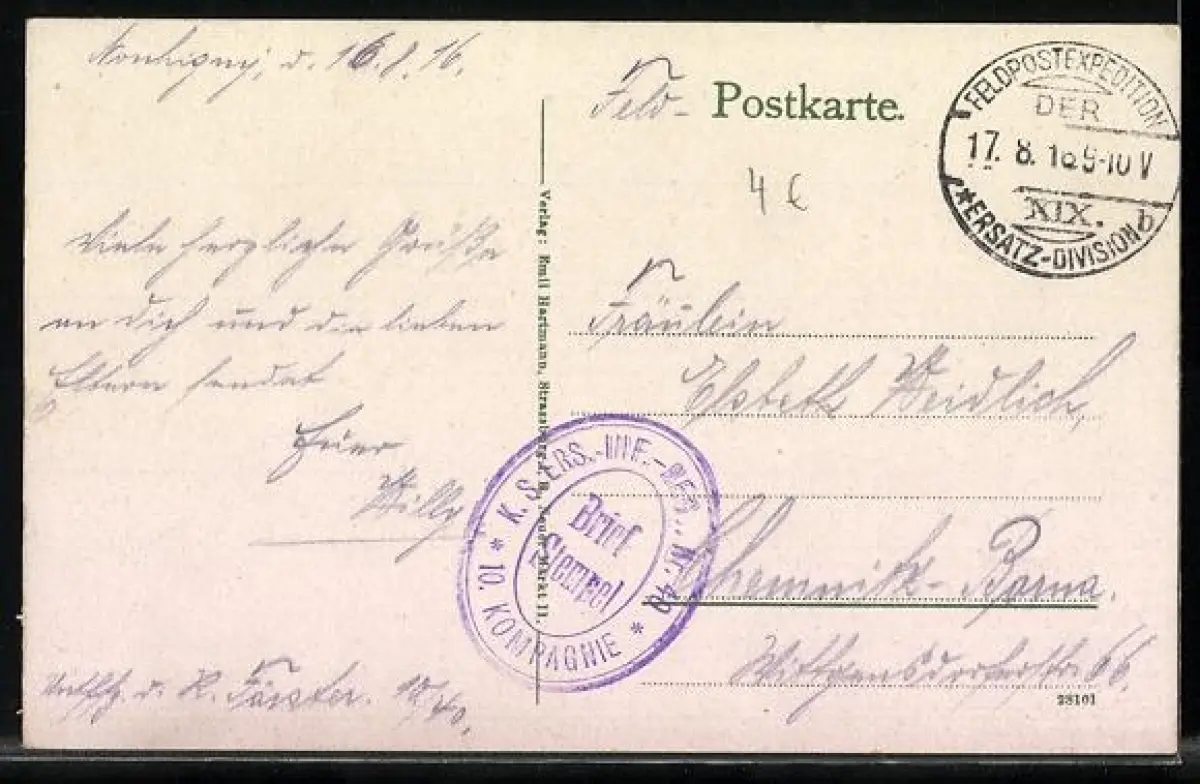 d. 16.8.16.
Viele herzliche Grüße
an Dich und die lieben
Eltern sendet
Euer
Willy
d. R. Förster. 10/40.
Verlag: Emil Hartmann, Strassburg i. E., Markt 11.
Feld- Postkarte.
4 €
FELDPOSTEXPEDITION
DER
17. 8. 16 9-10 V
XIX.
*ERSATZ-DIVISION b
Fräulein
Elsbeth Weidlich,
Chemnitz-Borna.
Wittgensdorferstr. 66.
K. S. ERS.-INF.-REGT. Nr. 40
Brief
Stempel
* 10. KOMPAGNIE *
28101